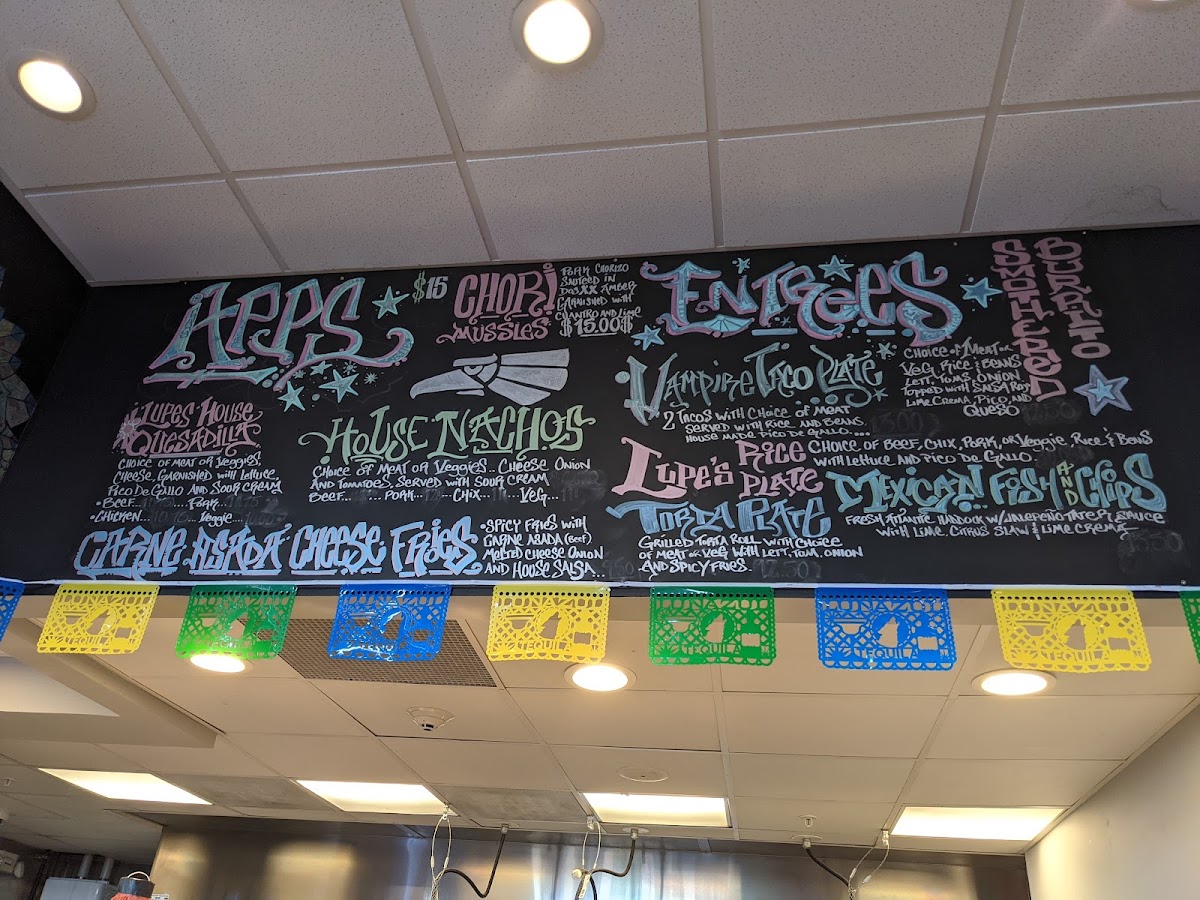 APPS
LUPES HOUSE
QUESADILLA
CHOICE OF MEAT OR VEGGIES,
CHEESE, GARNISHED WITH LETTUCE,
PICO DE GALLO AND SOUR CREAM
• BEEF... PORK...
• CHICKEN... VEGGIE...
$15
CHORI
MUSSLES
PORK CHORIZO
SAUTEED IN
DOS XX AMBER
GARNISHED WITH
CILANTRO AND LIME
$15.00$
HOUSE NACHOS
CHOICE OF MEAT OR VEGGIES.. CHEESE ONION
AND TOMATOES, SERVED WITH SOUR CREAM
BEEF... PORK... CHIX... VEG...
CARNE ASADA CHEESE FRIES
• SPICY FRIES WITH
CARNE ASADA (BEEF)
MELTED CHEESE ONION
AND HOUSE SALSA...
ENTREES
VAMPIRE TACO PLATE
2 TACOS WITH CHOICE OF MEAT
SERVED WITH RICE AND BEANS,
HOUSE MADE PICO DE GALLO....
SMOTHERED
BURRITO
CHOICE OF MEAT OR
VEG, RICE & BEANS
LETT, TOM'S, ONION
TOPPED WITH SALSA ROJA
LIME CREMA, PICO, AND
QUESO
LUPE'S RICE
PLATE
CHOICE OF BEEF, CHIX, PORK, OR VEGGIE, RICE & BEANS
WITH LETTUCE AND PICO DE GALLO
TORTA PLATE
GRILLED TORTA ROLL WITH CHOICE
OF MEAT OR VEG WITH LETT, TOM, ONION
AND SPICY FRIES
MEXICAN FISH AND CHIPS
FRESH ATLANTIC HADDOCK W/ JALEPEÑO TATER SAUCE
WITH LIME, CITRUS SLAW & LIME CREMA
TEQUILA
TEQUIL
TEQUIL
TEQUIL